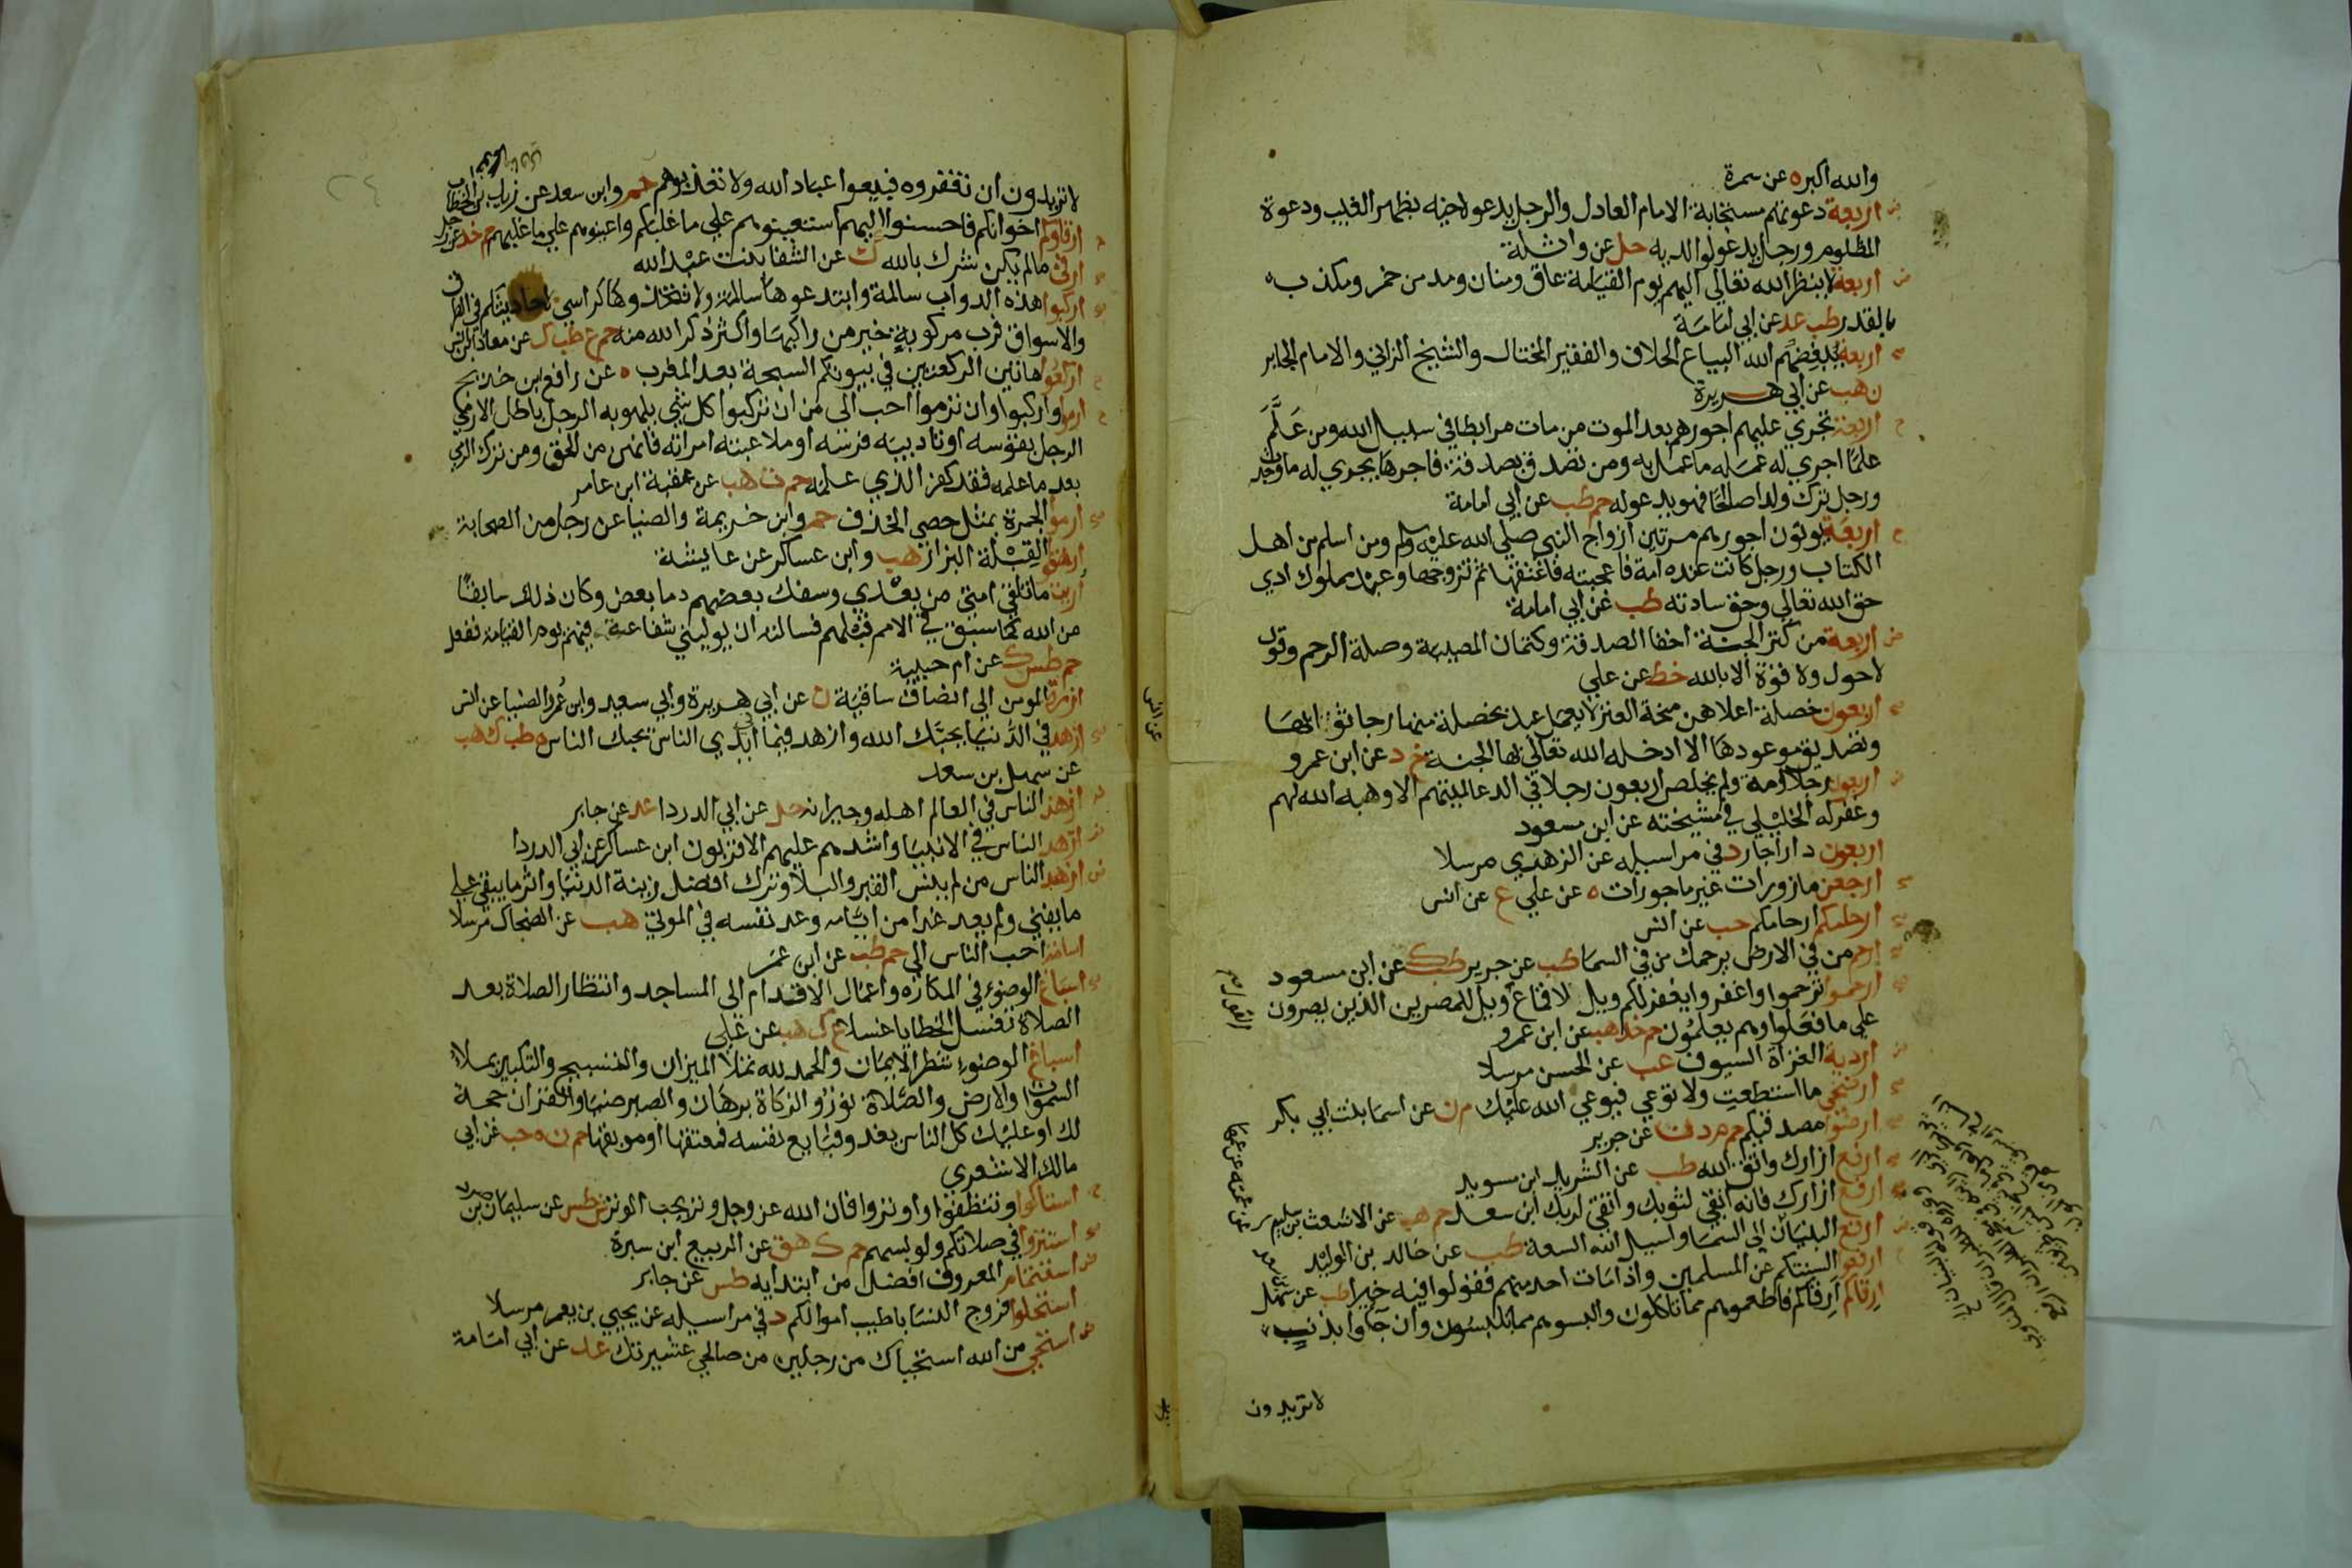 والله اكبر ه عن سمرة
اربعة دعوتهم مستجابة الامام العادل والرجل يدعو لاخيه بظهر الغيب ودعوة
المظلوم ورجل يدعو لوالديه حل عن واثلة
اربعة لا ينظر الله تعالي اليهم يوم القيامة عاق ومنان ومدمن خمر ومكذب
بالقدر طب عد عن ابي امامة
اربعة يبغضهم الله البياع الحلاف والفقير المختال والشيخ الزاني والامام الجاير
ن هب عن ابي هريرة
اربعة تجري عليهم اجورهم بعد الموت من مات مرابطا في سبيل الله ومن عَلَّمَ
علما اجري له عمله ما عمل به ومن تصدق بصدقة فاجرها يجري له ما وجدت
ورجل ترك ولدا صالحا فهو يدعو له حم طب عن ابي امامة
اربعة يوتون اجورهم مرتين ازواج النبي صلي الله عليه وسلم ومن اسلم من اهل
الكتاب ورجل كانت عنده امة فاعجبته فاعتقها ثم تزوجها وعبد مملوك ادي
حق الله تعالي وحق سادته طب عن ابي امامة
اربعة من كنز الجنة اخفا الصدقة وكتمان المصيبة وصلة الرحم وقول
لا حول ولا قوة الا بالله خط عن علي
اربعون خصلة اعلاهن منحة العنز لا يعمل عبد بخصلة منها رجا ثوابها
وتصديق موعودها الا ادخله الله تعالي بها الجنة خ د عن ابن عمرو
اربعون رجلا امة ولم يخلص اربعون رجلا في الدعا لميتهم الا وهبه الله لهم
وغفر له الخليلي في مشيخته عن ابن مسعود
اربعون دارا جار د في مراسيله عن الزهري مرسلا
ارجعن مازورات غير ماجورات ه عن علي ع عن انس
ارحامكم ارحامكم حب عن انس
ارحم من في الارض يرحمك من في السما طب عن جرير طب ك عن ابن مسعود
ارحموا ترحموا واغفروا يغفر لكم ويل لاقماع القول ويل للمصرين الذين يصرون
علي ما فعلوا وهم يعلمون حم خد هب عن ابن عمرو
اردية الغزاة السيوف عب عن الحسن مرسلا
ارضخي ما استطعت ولا توعي فيوعي الله عليك م ن عن اسما بنت ابي بكر
ارضوا مصدقيكم حم م د ن عن جرير
ارفع ازارك واتق الله طب عن الشريد ابن سويد
ارفع ازارك فانه انقي لثوبك واتقي لربك ابن سعد حم هب عن الاشعث بن سليم
عن عمته عن عمها
ارفع البنيان الي السما واسيل الله السعة طب عن خالد بن الوليد
ارفعوا السنتكم عن المسلمين واذا مات احد منهم فقولوا فيه خيرا طب عن سهل
بن سعد
ارقاكم ارقاكم فاطعموهم مما تاكلون والبسوهم مما تلبسون وان جاوا بذنب
لا تريدون
لا تريدون ان تغفروه فبيعوا عباد الله ولا تعذبوهم حم وابن سعد عن زيد بن الخطاب
ارقاوكم اخوانكم فاحسنوا اليهم استعينوهم علي ما غلبكم واعينوهم علي ما غلبهم حم خد عن رجل
ارقي ما لم يكن شرك بالله ك عن الشفا بنت عبد الله
اركبوا هذه الدواب سالمة وابتدعوها سالمة ولا تتخذوها كراسي لاحاديثكم في الطرق
والاسواق فرب مركوبة خير من راكبها واكثر ذكرا لله منه حم ع طب ك عن معاذ بن انس
اركعوا هاتين الركعتين في بيوتكم السبحة بعد المغرب ه عن رافع ابن خديج
ارموا واركبوا وان ترموا احب الي من ان تركبوا كل شي يلهو به الرجل باطل الا رمي
الرجل بقوسه او تاديبه فرسه او ملاعبته امراته فانهن من الحق ومن ترك الرمي
بعد ما علمه فقد كفر الذي علمه حم ت هب عن عقبة ابن عامر
ارموا الجمرة بمثل حصي الخذف حم وابن خزيمة والضيا عن رجل من الصحابة
ارهقوا القِبْلة البزار هب وابن عساكر عن عايشة
اريت ما تلقي امتي من بعدي وسفك بعضهم دما بعض وكان ذلك سابقا
من الله كما سبق في الامم قبلهم فسالته ان يوليني شفاعة فيهم يوم القيامة ففعل
حم طس ك عن ام حبيبة
ازرة المومن الي انصاف ساقيه ن عن ابي هريرة وابي سعيد وابن عُمر والضيا عن انس
ازهد في الدنيا يحبك الله وازهد فيما في ايدي الناس يحبك الناس ه طب ك هب
عن سهل بن سعد
ازهد الناس في العالم اهله وجيرانه حل عن ابي الدردا عد عن جابر
ازهد الناس في الانبيا واشدهم عليهم الاقربون ابن عساكر عن ابي الدردا
ازهد الناس من لم ينس القبر والبلا وترك افضل زينة الدنيا واثر ما يبقي علي
ما يفني ولم يعد غدا من ايامه وعد نفسه في الموتي هب عن الضحاك مرسلا
اسامة احب الناس الي حم طب عن ابن عمر
اسباغ الوضوء في المكاره واعمال الاقدام الى المساجد وانتظار الصلاة بعد
الصلاة تغسل الخطايا غسلا ع ك هب عن علي
اسباغ الوضوء شطر الايمان والحمد لله تملا الميزان والتسبيح والتكبير يملا
السموات والارض والصلاة نور والزكاة برهان والصبر ضيا والقران حجة
لك او عليك كل الناس يغدو فبايع نفسه فمعتقها او موبقها حم ن ه حب عن ابي
مالك الاشعري
استاكوا وتنظفوا واوتروا فان الله عز وجل وتر يحب الوتر ش طس عن سليمان بن صرد
استتروا في صلاتكم ولو بسهم حم ك هق عن الربيع ابن سبرة
استتمام المعروف افضل من ابتدايه طس عن جابر
استحلوا فروج النسا باطيب اموالكم د في مراسيله عن يحيي بن يعمر مرسلا
استحي من الله استحياك من رجلين من صالحي عشيرتك عد عن ابي امامة